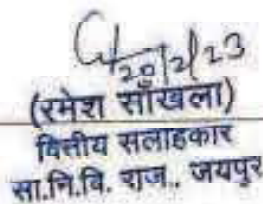 20/2/23
(रमेश साँखला)
वित्तीय सलाहकार
सा.नि.वि. राज., जयपुर